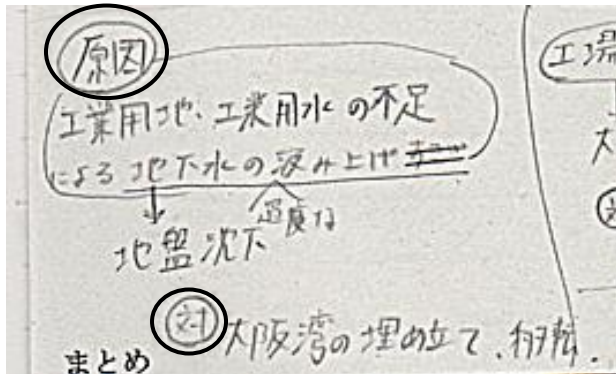 原因
工業用地、工業用水の不足
による地下水の汲み上げ
過度な
地盤沈下
対 大阪湾の埋め立て、移転.
まとめ
工場
大
対